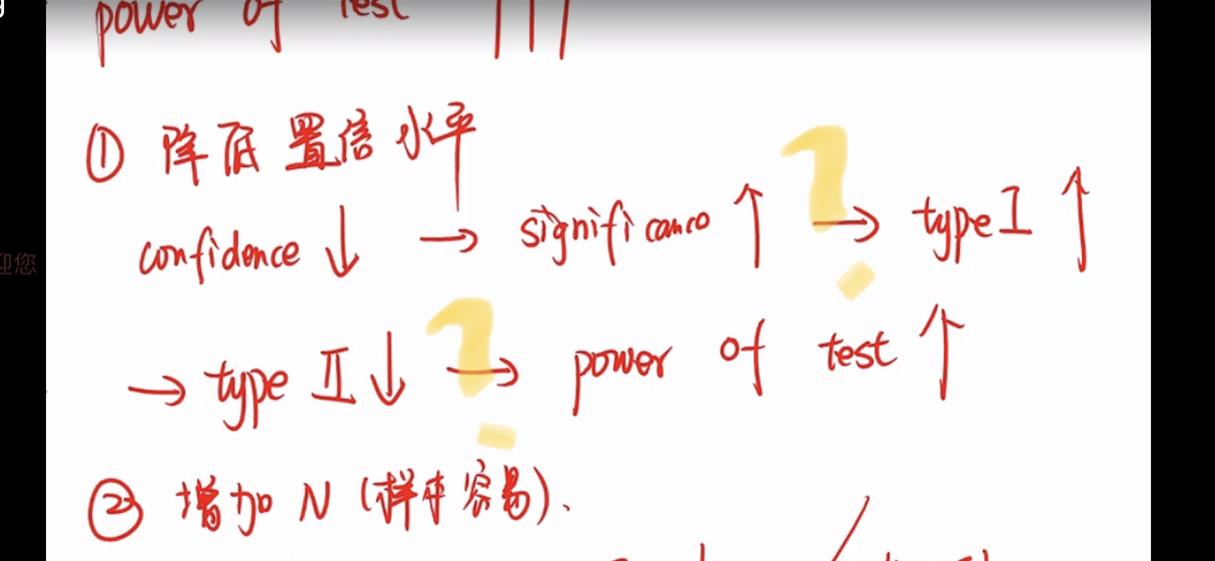 power of test
① 降低置信水平
confidence ↓ → significance ↑ ? → type I ↑
迎您
→ type II ↓ ? → power of test ↑
② 增加 N (样本容易).